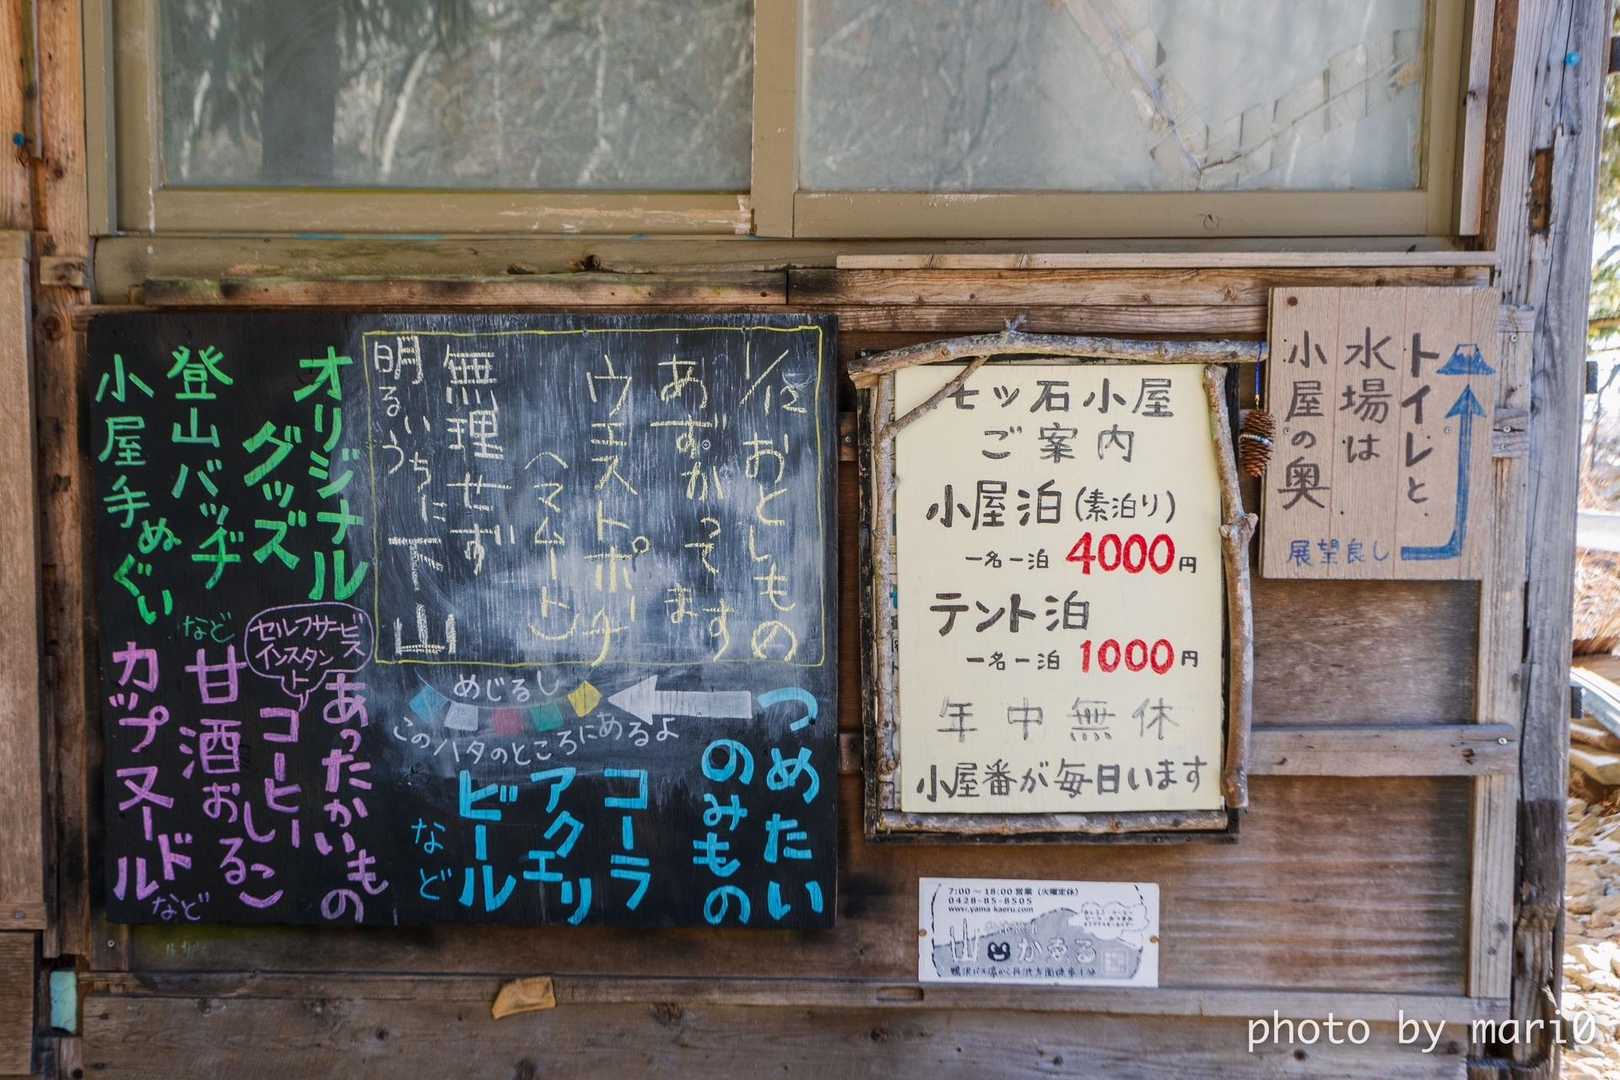 オリジナル
グッズ
登山バッヂ
小屋手ぬぐい
など
おとしもの
あずかってます
ウエストポーチ
(マムート)
無理せず
明るいうちに下山
セルフサービス
インスタント
あったかいもの
コーヒー
甘酒おしるこ
カップヌードル
など
めじるし
このハタのところにあるよ
つめたい
のみもの
コーラ
アクエリ
ビール
など
七ツ石小屋
ご案内
小屋泊(素泊り)
一名一泊 4000円
テント泊
一名一泊 1000円
年中無休
小屋番が毎日います
トイレと
水場は
小屋の奥
展望良し
7:00~18:00営業(火曜定休)
0428-85-8505
www.yama-kaeru.com
山かゑる
photo by mari0